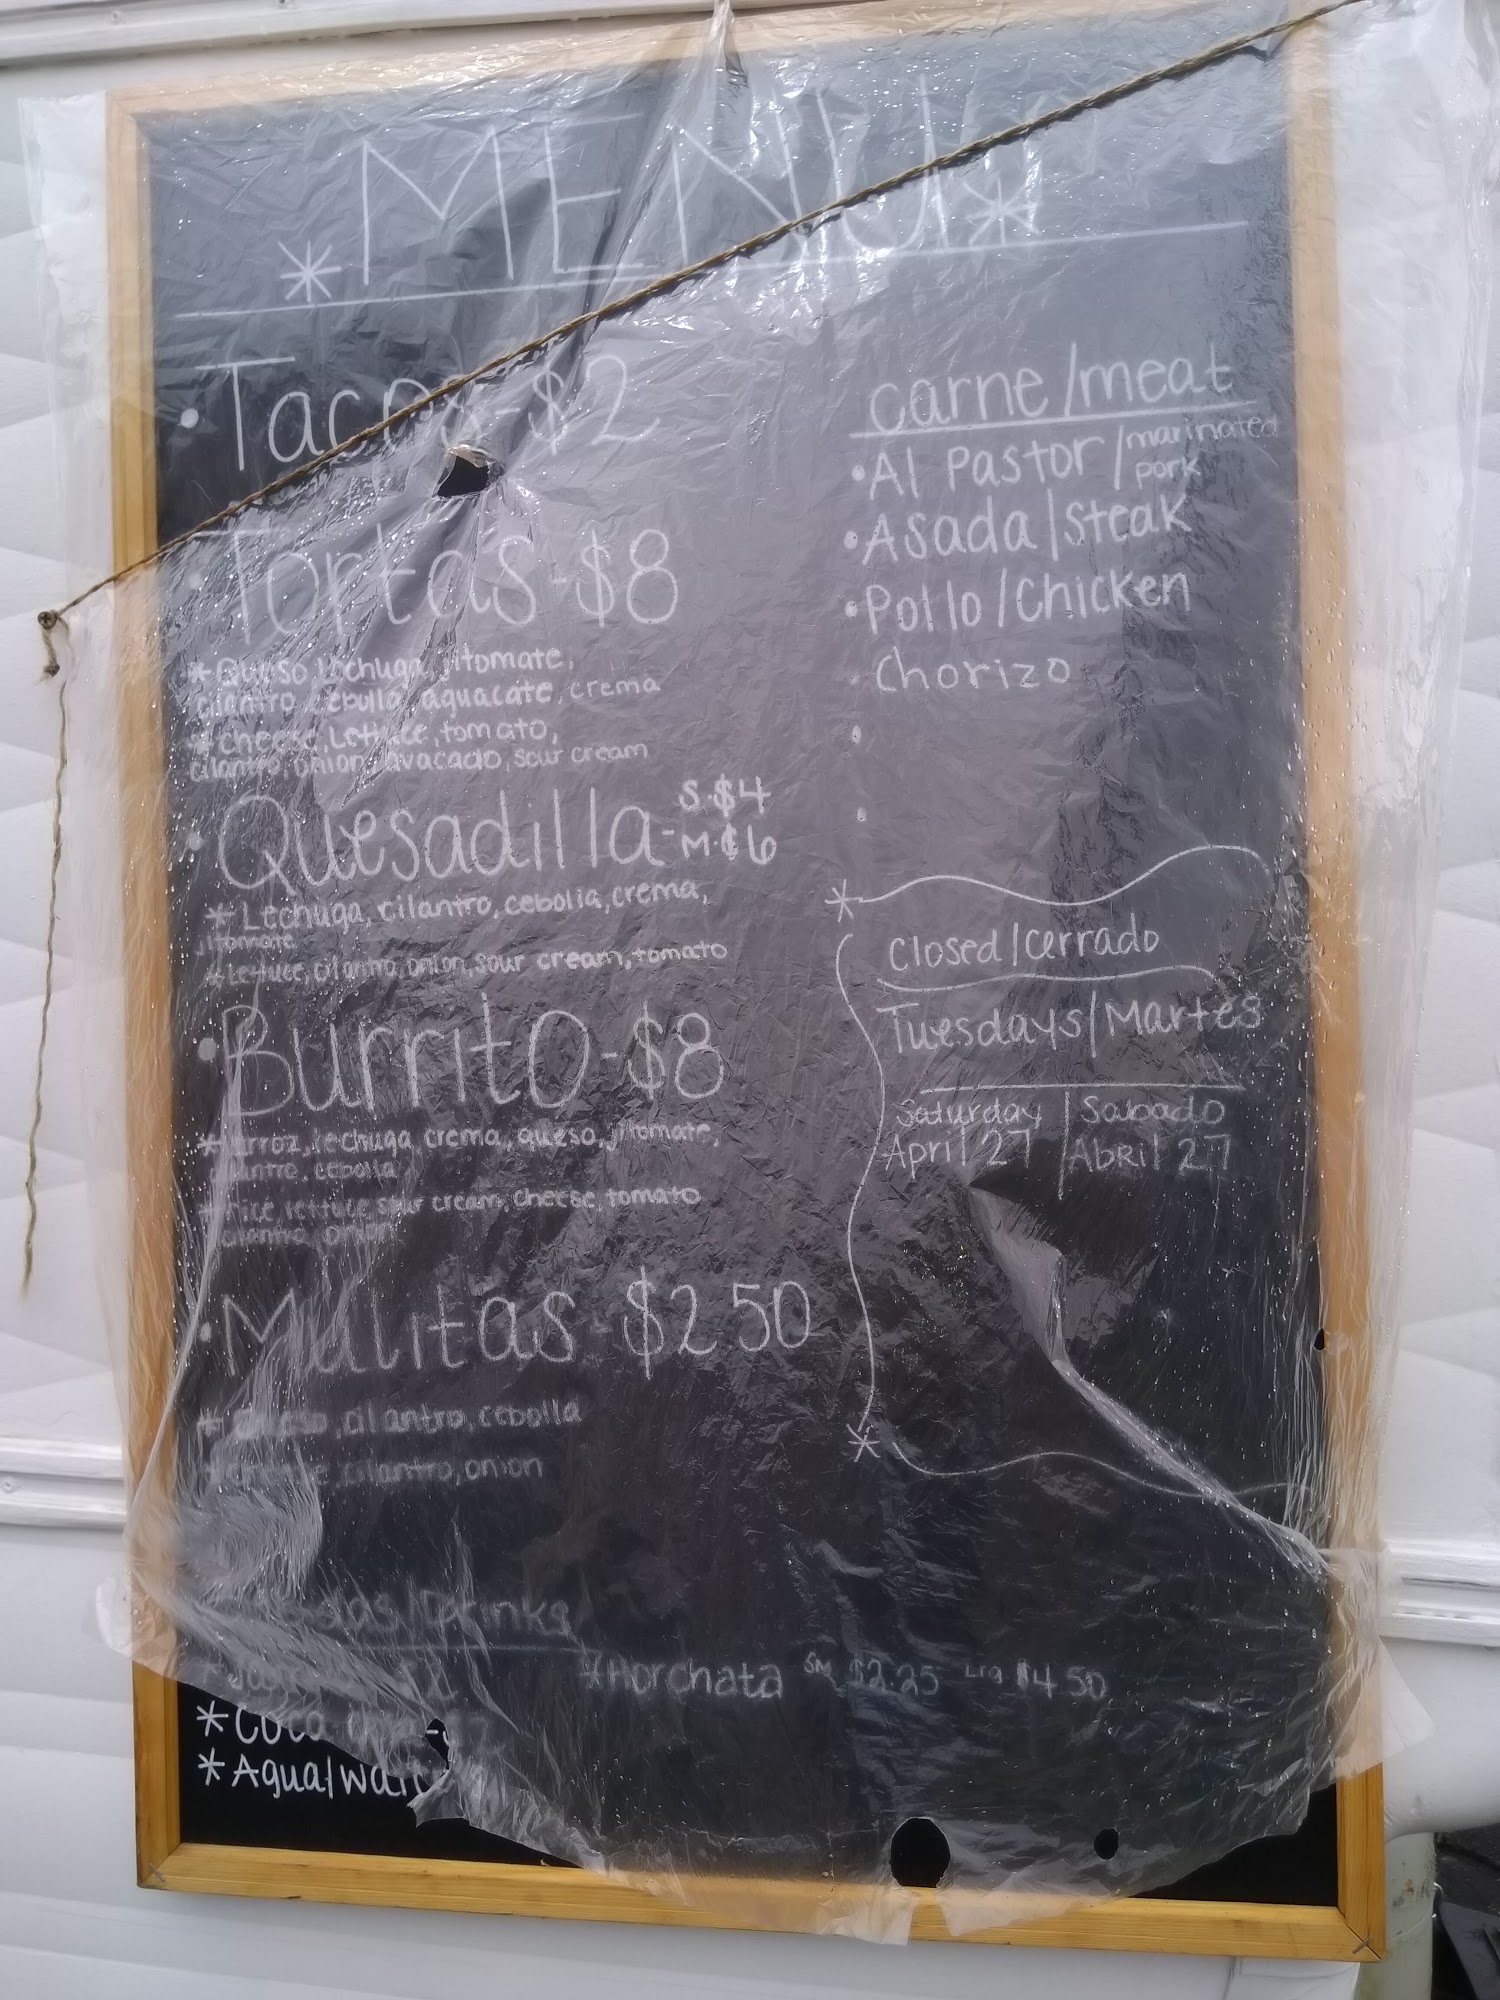 *MENU*
• Tacos - $2
• Tortas - $8
* Queso, Lechuga, jitomate,
cilantro, cebolla, aguacate, crema
* cheese, Lettuce, tomato,
cilantro, onion, avacado, sour cream
• Quesadilla - S. $4
M. $6
* Lechuga, cilantro, cebolla, crema,
jitomate
* Lettuce, cilantro, onion, sour cream, tomato
• Burrito - $8
* Arroz, lechuga, crema, queso, jitomate,
cilantro, cebolla
* Rice, lettuce, sour cream, cheese, tomato
cilantro, onion
• Mulitas - $2.50
* Queso, cilantro, cebolla
* cilantro, onion
carne/meat
• Al Pastor / marinated
pork
• Asada/Steak
• Pollo/Chicken
• Chorizo
Closed/Cerrado
Tuesdays/Martes
Saturday | Sabado
April 27 | Abril 27
/Drinks
* Coca
* Agua/
* Horchata SM $2.25 Lrg $4.50